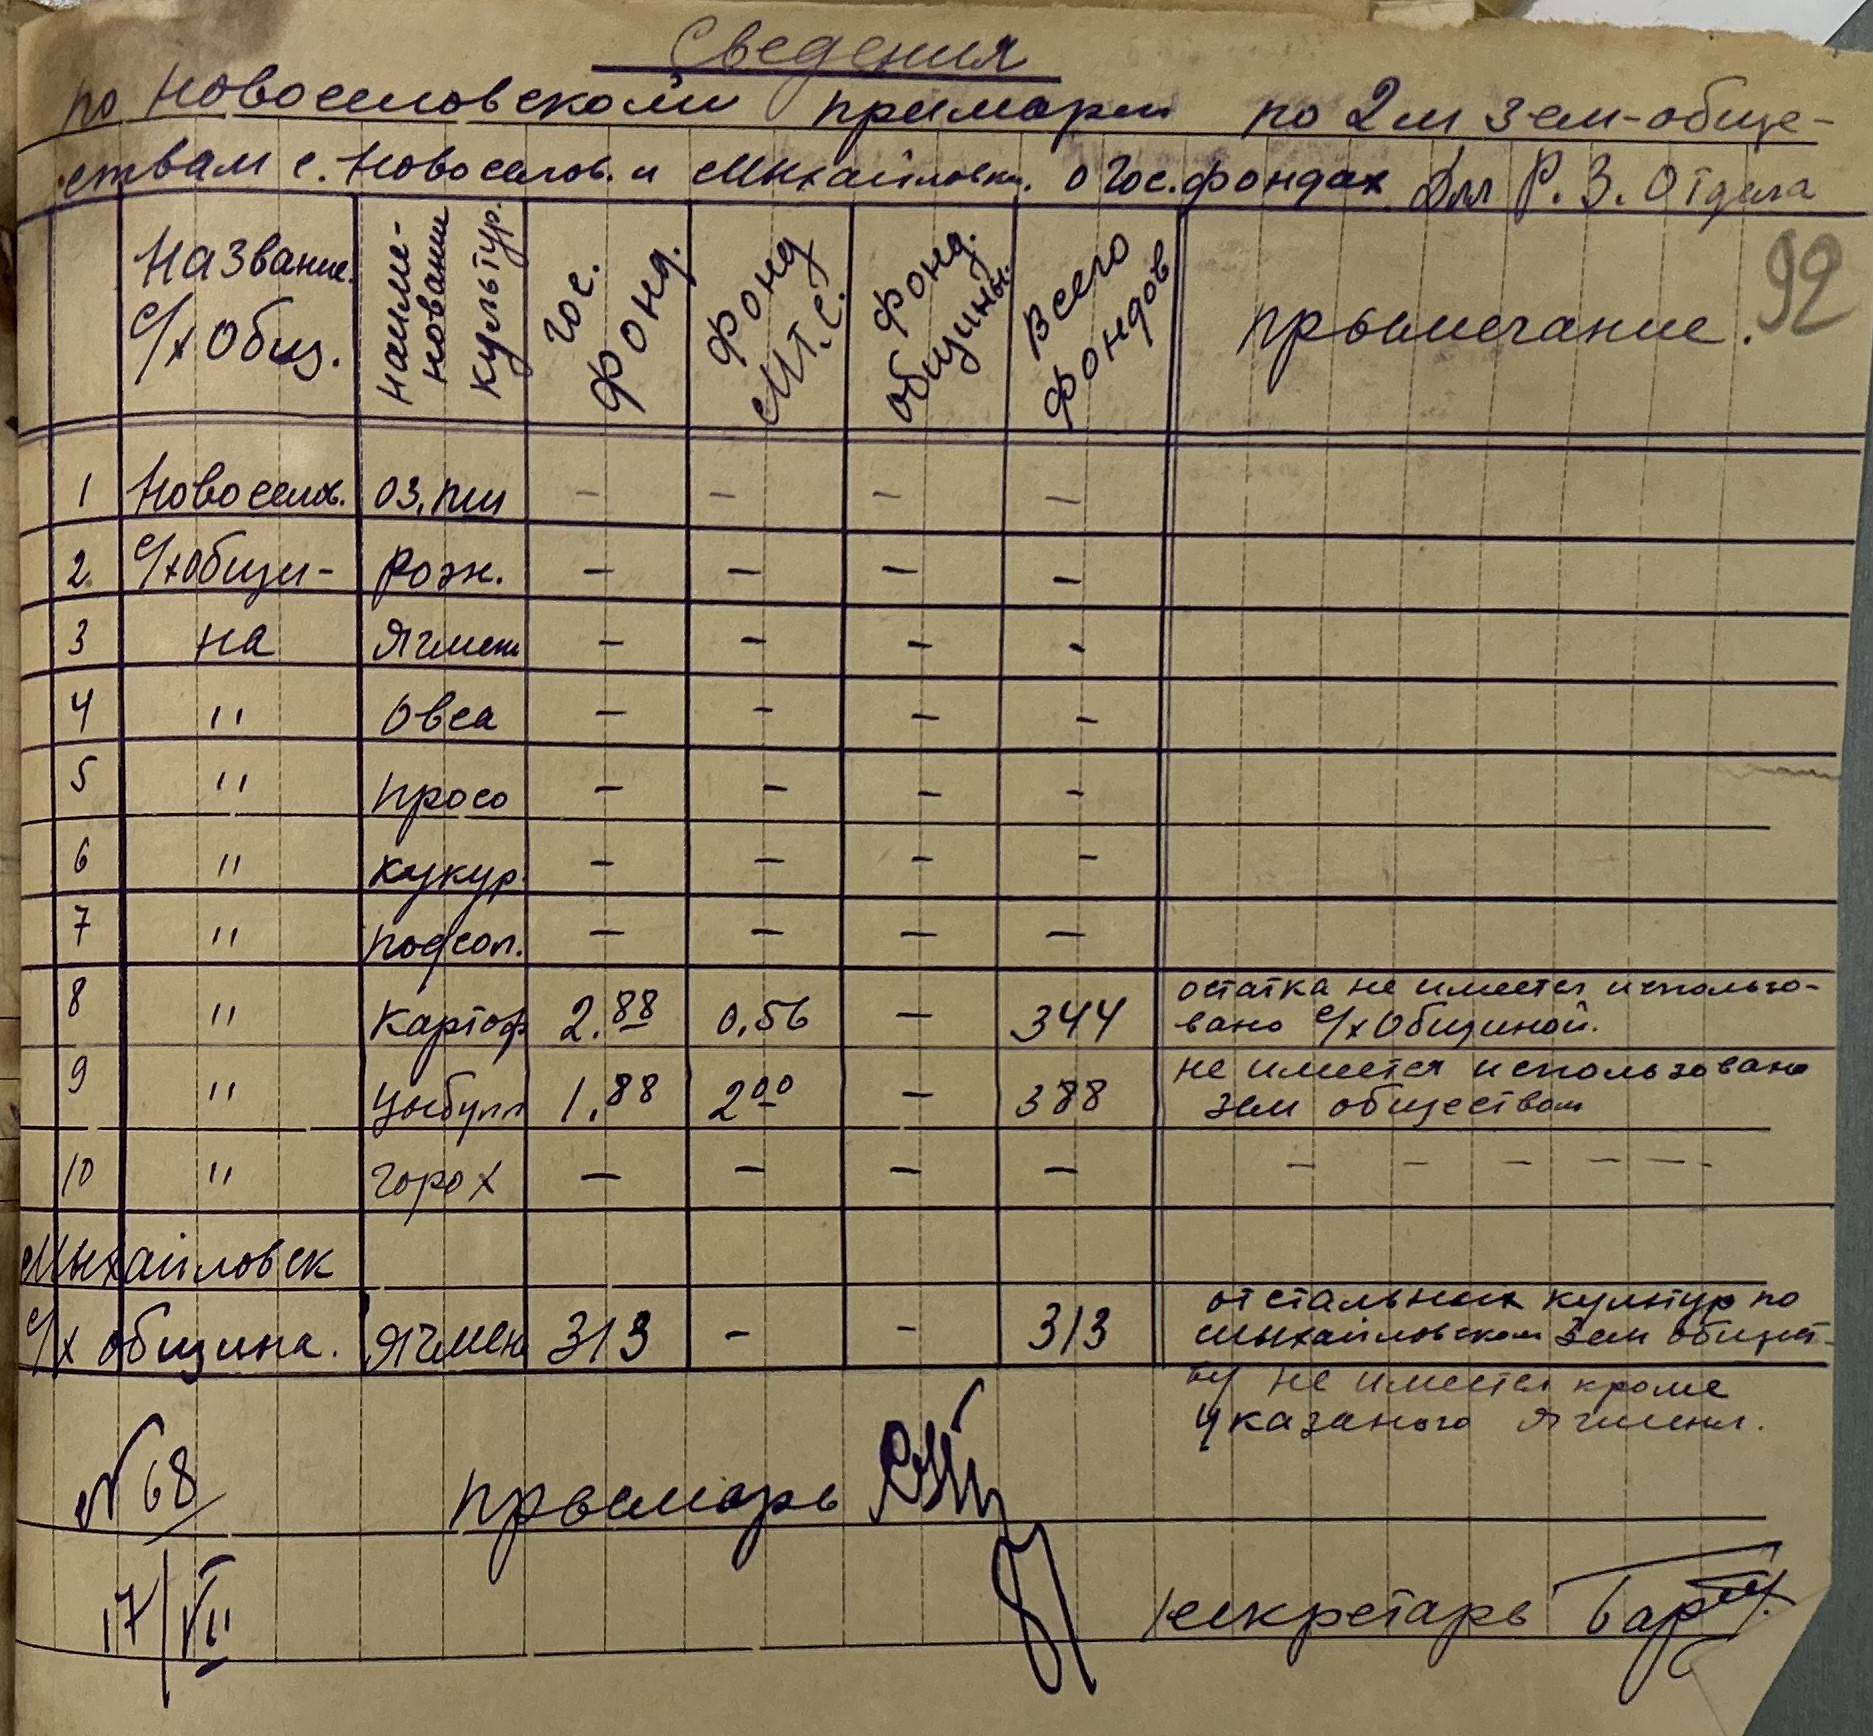 Сведения
по Новоселовскоми примарии по 2м зем-обще-
ствам с. Новоселов. и Мыхайловки. о Гос.фондах Для Р. З. Отдела
92
Название с/х Общ. наиме-нование культур. Гос. Фонд. Фонд МТ.С. Фонд. общины. Всего фондов прымечание.
1 Новоселов. оз.пш - - - -
2 с/х общи- рож. - - - -
3 на Ячмень - - - -
4 " Овса - - - -
5 " просо - - - -
6 " кукур. - - - -
7 " подсол. - - - -
8 " Картоф 2.88 0.56 - 344 остатка не имеется использо-
вано с/х Общиной.
9 " Цыбулл 1.88 2 00 - 388 не имеется использовано
зем обществом
10 " горох - - - - - - - - - -
Мыхайловск
с/х община. Ячмень 313 - - 313 от стальных культур по
Мыхайловском зем общест-
ву не имеется кроме
указаного Ячменя.
№ 68 прымарь
17/VII секретарь